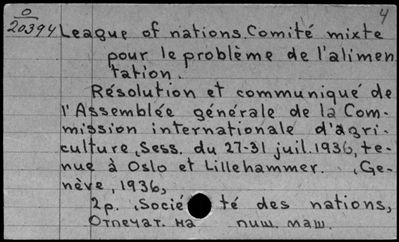 0
20394
4
League of nations. Comité mixte
pour le problème de l'alimen
tation.
Résolution et communiqué de
l'Assemblée générale de la Com-
mission internationale d'agri-
culture, Sess. du 27-31 juil. 1936, te-
nue à Oslo et Lillehammer. (Ge-
nève, 1936,
2p. (Socié té des nations,
Отпечат. на пиш. маш.